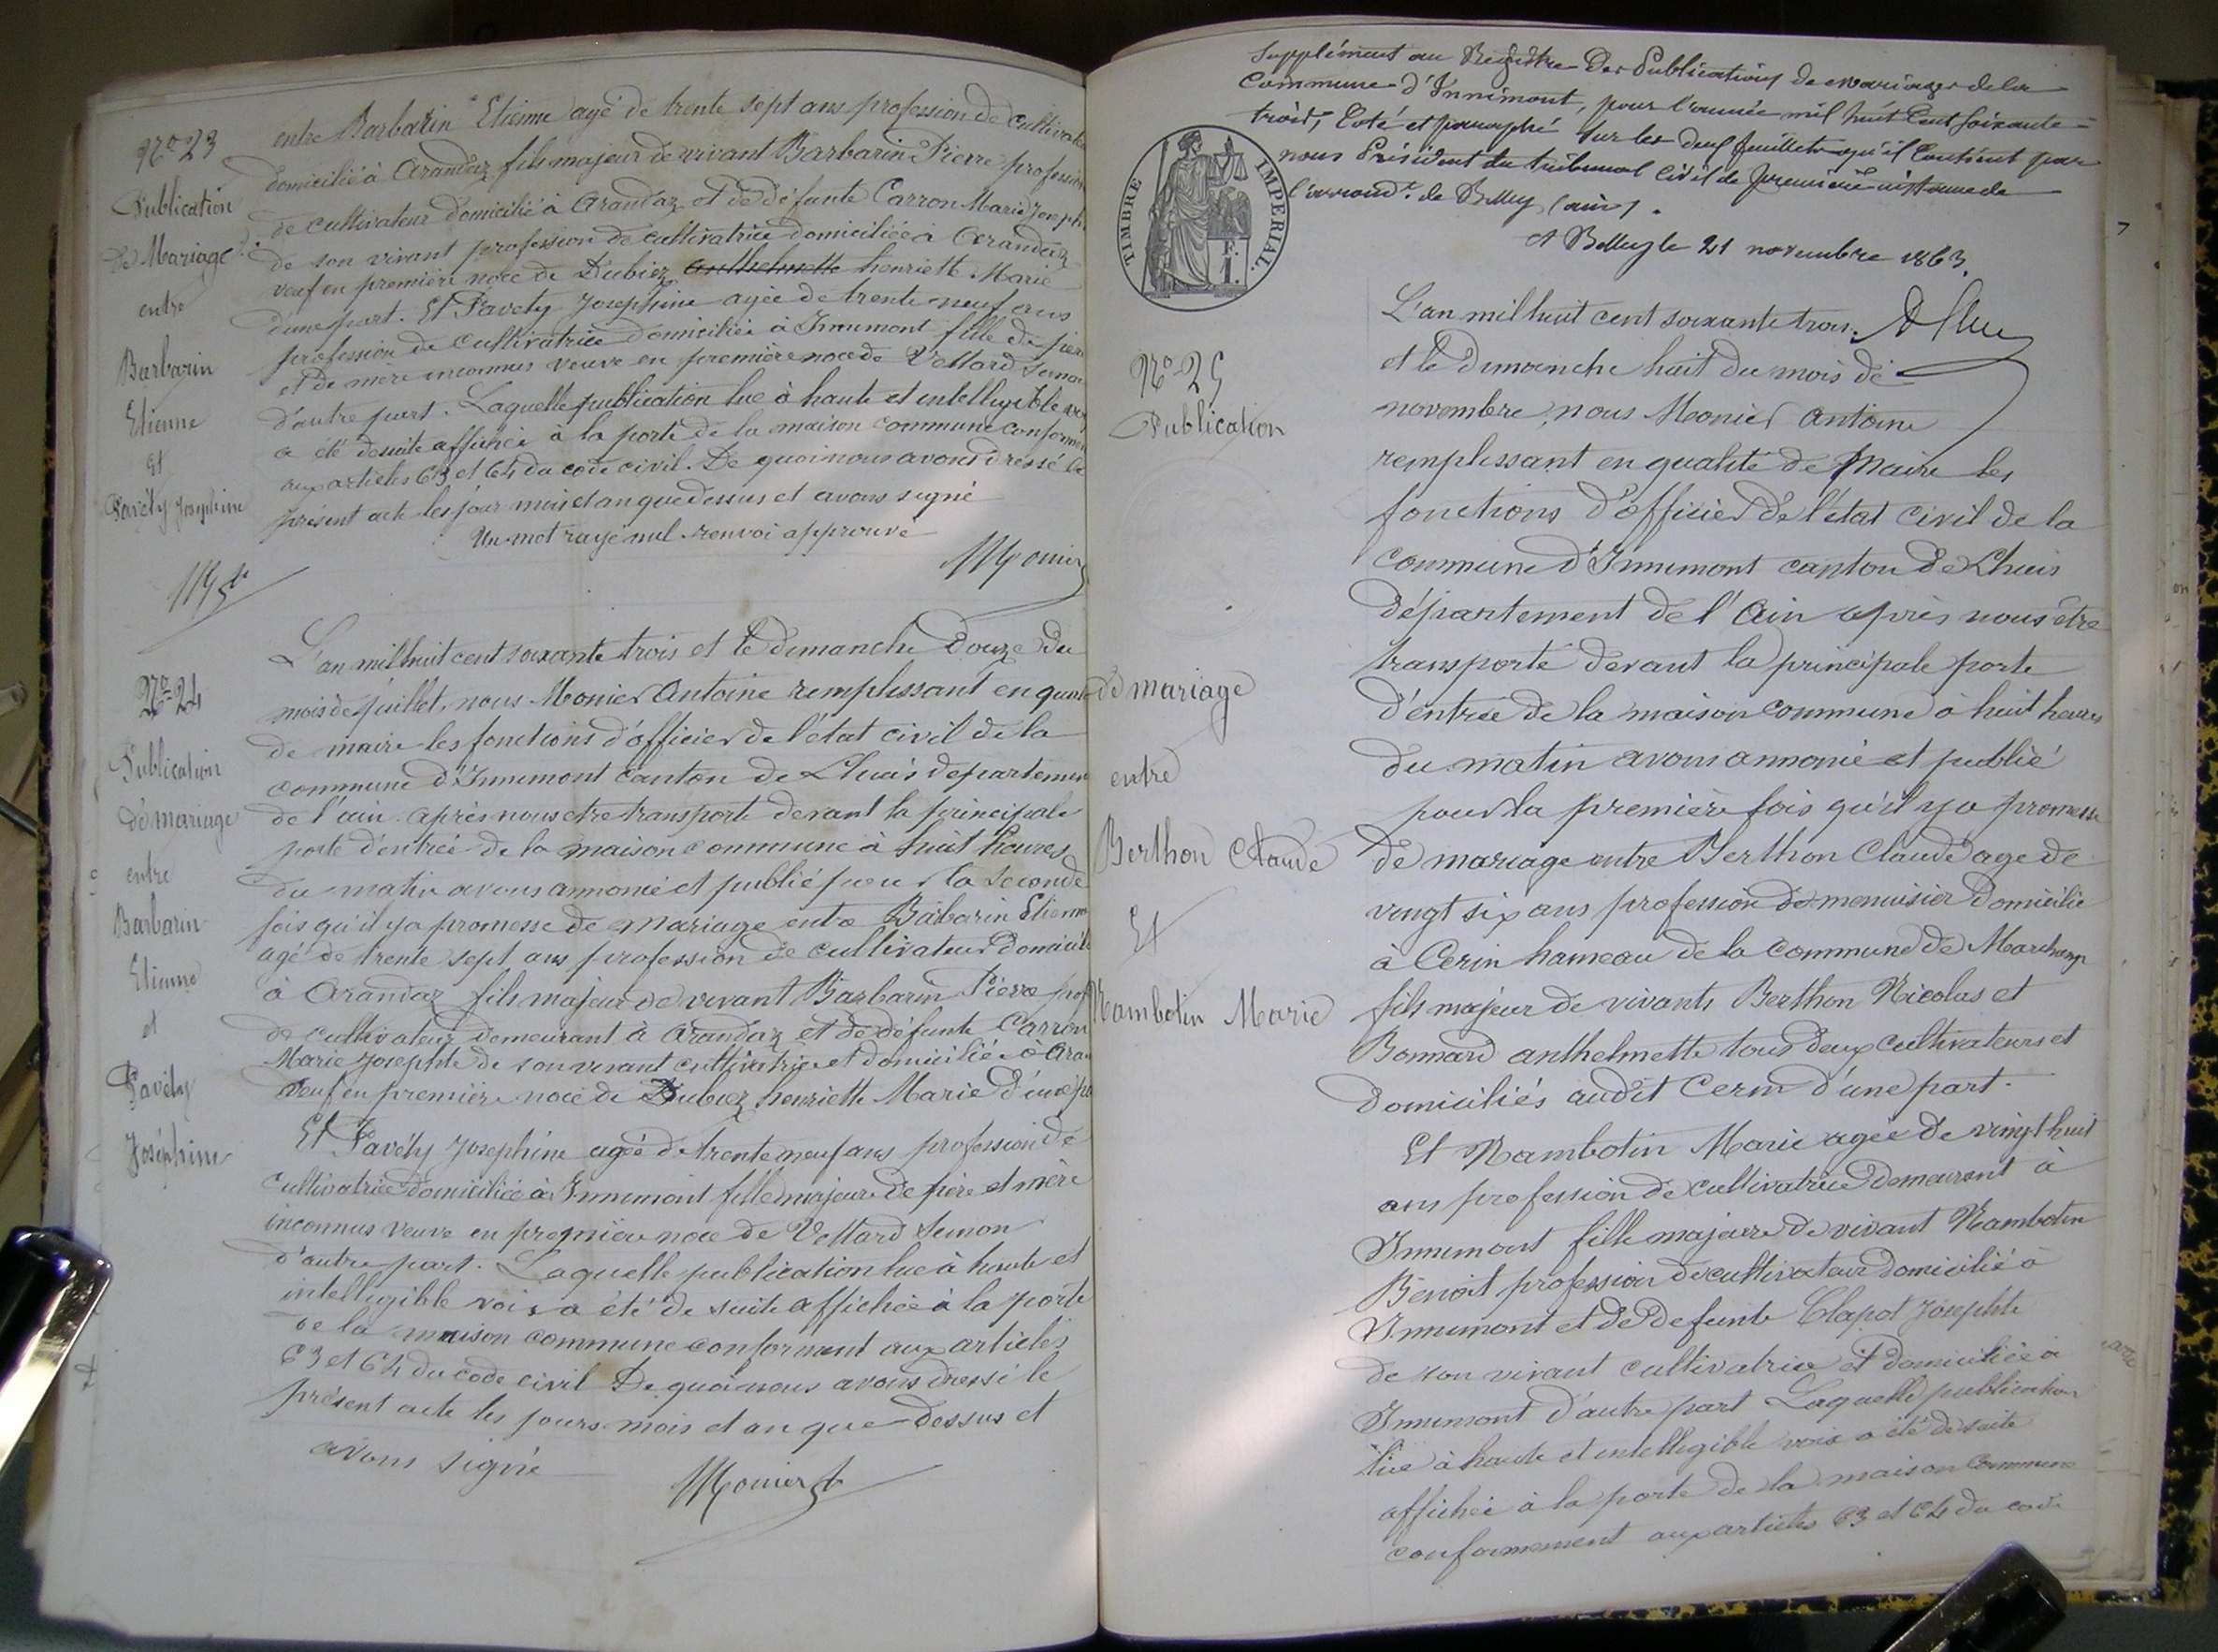 No 23
Publication
de Mariage
entre
Barbarin
Etienne
Et
Pavély Joséphine
entre Barbarin Etienne agé de trente sept ans profession de cultivate
domicilié à Arandaz fils majeur de vivant Barbarin Pierre profession
de cultivateur domicilié à Arandaz et de défunte Carron Marie Joseph
de son vivant profession de cultivatrice domiciliée à Arandaz
veuf en première noce de Dubiez anthelmette henriette Marie
d'une part. Et Pavely Josephine agée de trente neuf ans
profession de cultivatrice domiciliée à Innimont fille de père
et de mère inconnus veuve en première noce de Vettard
d'autre part. Laquelle publication lue à haute et intelligible
a été desuite affichée à la porte de la maison commune conform
aux articles 63 et 64 du code civil. De quoi nous avons dressé le
présent acte les jour mois et an que dessus et avons signé
Un mot rayé nul renvoi approuvé
Monier
No 24
Publication
de mariage
entre
Barbarin
Etienne
et
Pavély
Joséphine
L'an mil huit cent soixante trois et le dimanche Douze du
mois de juillet, nous Monier Antoine remplissant en qual
de maire les fonctions d'officier de l'état civil de la
commune d'Innimont canton de Lhuis departemen
de l'ain après nous etre transporté devant la principale
porte d'entrée de la maison commune à huit heures
du matin avons annoncé et publié pour la seconde
fois qu'il y a promesse de mariage entre Barbarin Etienne
agé de trente sept ans profession de cultivateur domicili
à Arandaz fils majeur de vivant Barbarin Pierre prof
de cultivateur demeurant à Arandaz et de défunte Carron
Marie Josephte de son vivant cultivatrice et domiciliée à Aran
veuf en première noce de Dubiez henriette Marie d'une pa
Et Pavély Josephine agée de trente neuf ans profession de
cultivatrice domiciliée à Innimont fille majeure de père et mère
inconnus veuve en première noce de Vettard Simon
d'autre part. Laquelle publication lue à haute et
intelligible voix a été de suite affichée à la porte
de la maison commune conforment aux articles
63 et 64 du code civil De quoi nous avons dressé le
présent acte les jours mois et an que dessus et
avons signé
Monier
Supplément au Registre Des Publications de mariages de la
Commune d'Innimont, pour l'année mil huit Cent soixante-
trois, Coté et paraphé sur les deux feuillets qu'il Contient par
nous Président du tribunal Civil de première instance de
l'arrondt. de Belley (ain).
A Belley le 21 novembre 1863.
TIMBRE IMPERIAL.
F.
1.
No 25
Publication
de mariage
entre
Berthon Claude
Et
Nambotin Marie
L'an mil huit cent soixante trois.
et le Dimanche huit du mois de
novembre, nous Monier Antoine
remplissant en qualité de Maire les
fonctions d'officier de l'état civil de la
commune d'Innimont canton de Lhuis
département de l'Ain après nous être
transporté devant la principale porte
d'entrée de la maison commune à huit heures
du matin avons annoncé et publié
pour la première fois qu'il y a promesse
de mariage entre Berthon Claude age de
vingt six ans profession de menuisier domicilie
à Cerin hameau de la commune de Marchamp
fils majeur de vivants Berthon Nicolas et
Bonnard anthelmette tous deux cultivateurs et
domiciliés audit Cerin d'une part.
Et Nambotin Marie agée de vingt huit
ans profession de cultivatrice demeurant à
Innimont fille majeure de vivant Nambotin
Benoit profession de cultivateur domicilié à
Innimont et de defunte Clapot Josephte
de son vivant cultivatrice et domiciliée à
Innimont d'autre part Laquelle publication
lue à haute et intelligible voix a été de suite
affichée à la porte de la maison commune
conformement aux articles 63 et 64 du code